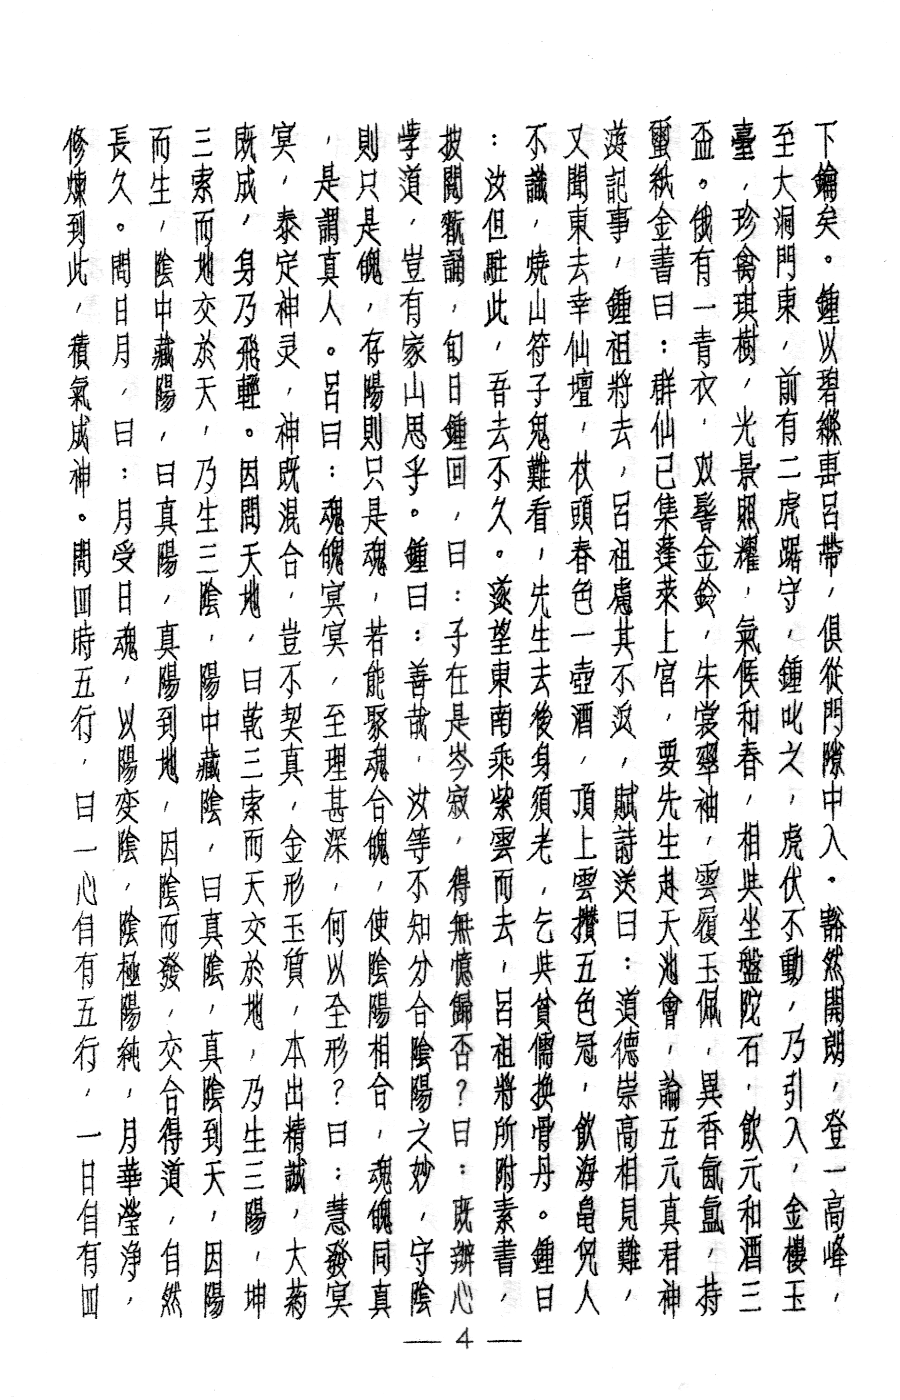 下鑰矣。鍾以碧縧専呂帶，俱從門隙中入。豁然開朗，登一高峰，
至大洞門東，前有二虎踞守，鍾叱之，虎伏不動，乃引入，金樓玉
臺，珍禽琪樹，光景照耀，氣候和春，相與坐盤陀石，飲元和酒三
盃。俄有一青衣，双髻金鈴，朱裳翠袖，雲履玉佩，異香氤氲，持
蜑紙金書曰：群仙已集蓬萊上宮，要先生赴天池會，論五元真君神
遊記事，鍾祖將去，呂祖慮其不返，賦詩送曰：道德崇高相見難，
又聞東去幸仙壇，杖頭春色一壺酒，頂上雲攢五色冠，飲海龜兒人
不識，燒山符子鬼難看，先生去後身須老，乞與貧儒換骨丹。鍾曰
：汝但駐此，吾去不久。遂望東南乘紫雲而去，呂祖將所附素書，
披閱翫誦，旬日鍾回，曰：子在是岑寂，得無憶歸否？曰：既辦心
學道，豈有家山思乎。鍾曰：善哉，汝等不知分合陰陽之妙，守陰
則只是魄，存陽則只是魂，若能聚魂合魄，使陰陽相合，魂魄同真
，是謂真人。呂曰：魂魄冥冥，至理甚深，何以全形？曰：慧發冥
冥，泰定神灵，神既混合，豈不契真，金形玉質，本出精誠，大葯
既成，身乃飛輕。因問天地，曰乾三索而天交於地，乃生三陽，坤
三索而地交於天，乃生三陰，陽中藏陰，曰真陰，真陰到天，因陽
而生，陰中藏陽，曰真陽，真陽到地，因陰而發，交合得道，自然
長久。問日月，曰：月受日魂，以陽变陰，陰極陽純，月華瑩净，
修煉到此，積氣成神。問四時五行，曰一心自有五行，一日自有四
— 4 —